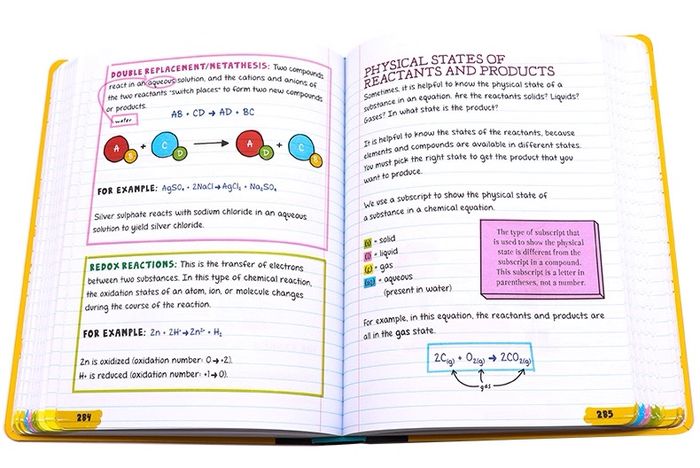 DOUBLE REPLACEMENT/METATHESIS: Two compounds
react in an aqueous solution, and the cations and anions of
the two reactants "switch places" to form two new compounds
or products.
water
AB + CD → AD + BC
A B + C D → A D + C B
FOR EXAMPLE: AgSO₄ + 2NaCl → AgCl₂ + Na₂SO₄
Silver sulphate reacts with sodium chloride in an aqueous
solution to yield silver chloride.
REDOX REACTIONS: This is the transfer of electrons
between two substances. In this type of chemical reaction,
the oxidation states of an atom, ion, or molecule changes
during the course of the reaction.
FOR EXAMPLE: Zn + 2H⁺ → Zn²⁺ + H₂
Zn is oxidized (oxidation number: 0 → +2).
H+ is reduced (oxidation number: +1 → 0).
284
PHYSICAL STATES OF
REACTANTS AND PRODUCTS
Sometimes, it is helpful to know the physical state of a
substance in an equation. Are the reactants solids? Liquids?
Gases? In what state is the product?
It is helpful to know the states of the reactants, because
elements and compounds are available in different states.
You must pick the right state to get the product that you
want to produce.
We use a subscript to show the physical state of
a substance in a chemical equation.
(s) = solid
(l) = liquid
(g) = gas
(aq) = aqueous
(present in water)
The type of subscript that
is used to show the physical
state is different from the
subscript in a compound.
This subscript is a letter in
parentheses, not a number.
For example, in this equation, the reactants and products are
all in the gas state.
2C(g) + O₂(g) → 2CO₂(g)
gas
285